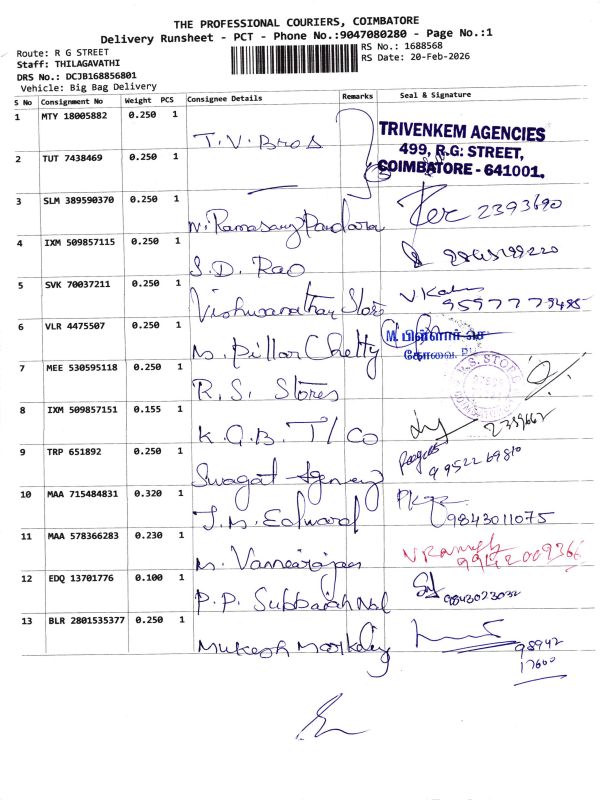 THE PROFESSIONAL COURIERS, COIMBATORE
Delivery Runsheet - PCT - Phone No.:9047080280 - Page No.:1
Route: R G STREET
RS No.: 1688568
Staff: THILAGAVATHI
RS Date: 20-Feb-2026
DRS No.: DCJB168856801
Vehicle: Big Bag Delivery
S No Consignment No Weight PCS Consignee Details Remarks Seal & Signature
1 MTY 18005882 0.250 1 T.V. Bros
TRIVENKEM AGENCIES
499, R.G. STREET,
COIMBATORE - 641001.
2 TUT 7438469 0.250 1
3 SLM 389590370 0.250 1 N. Ramasamy Pandara 2393690
4 IXM 509857115 0.250 1 S.D. Rao
5 SVK 70037211 0.250 1 Vishwanathan Store
6 VLR 4475507 0.250 1 M. Pillar Chetty
கோவை
7 MEE 530595118 0.250 1 R.S. Stores
8 IXM 509857151 0.155 1 K.G.B. T/Co 2399662
9 TRP 651892 0.250 1 Swagat Agency 99522 69810
10 MAA 715484831 0.320 1 J.M. Edward 9843011075
11 MAA 578366283 0.230 1 M.
12 EDQ 13701776 0.100 1 P.P. Subbaiah Nal 9843023032
13 BLR 2801535377 0.250 1 Mukesh 98942
17600